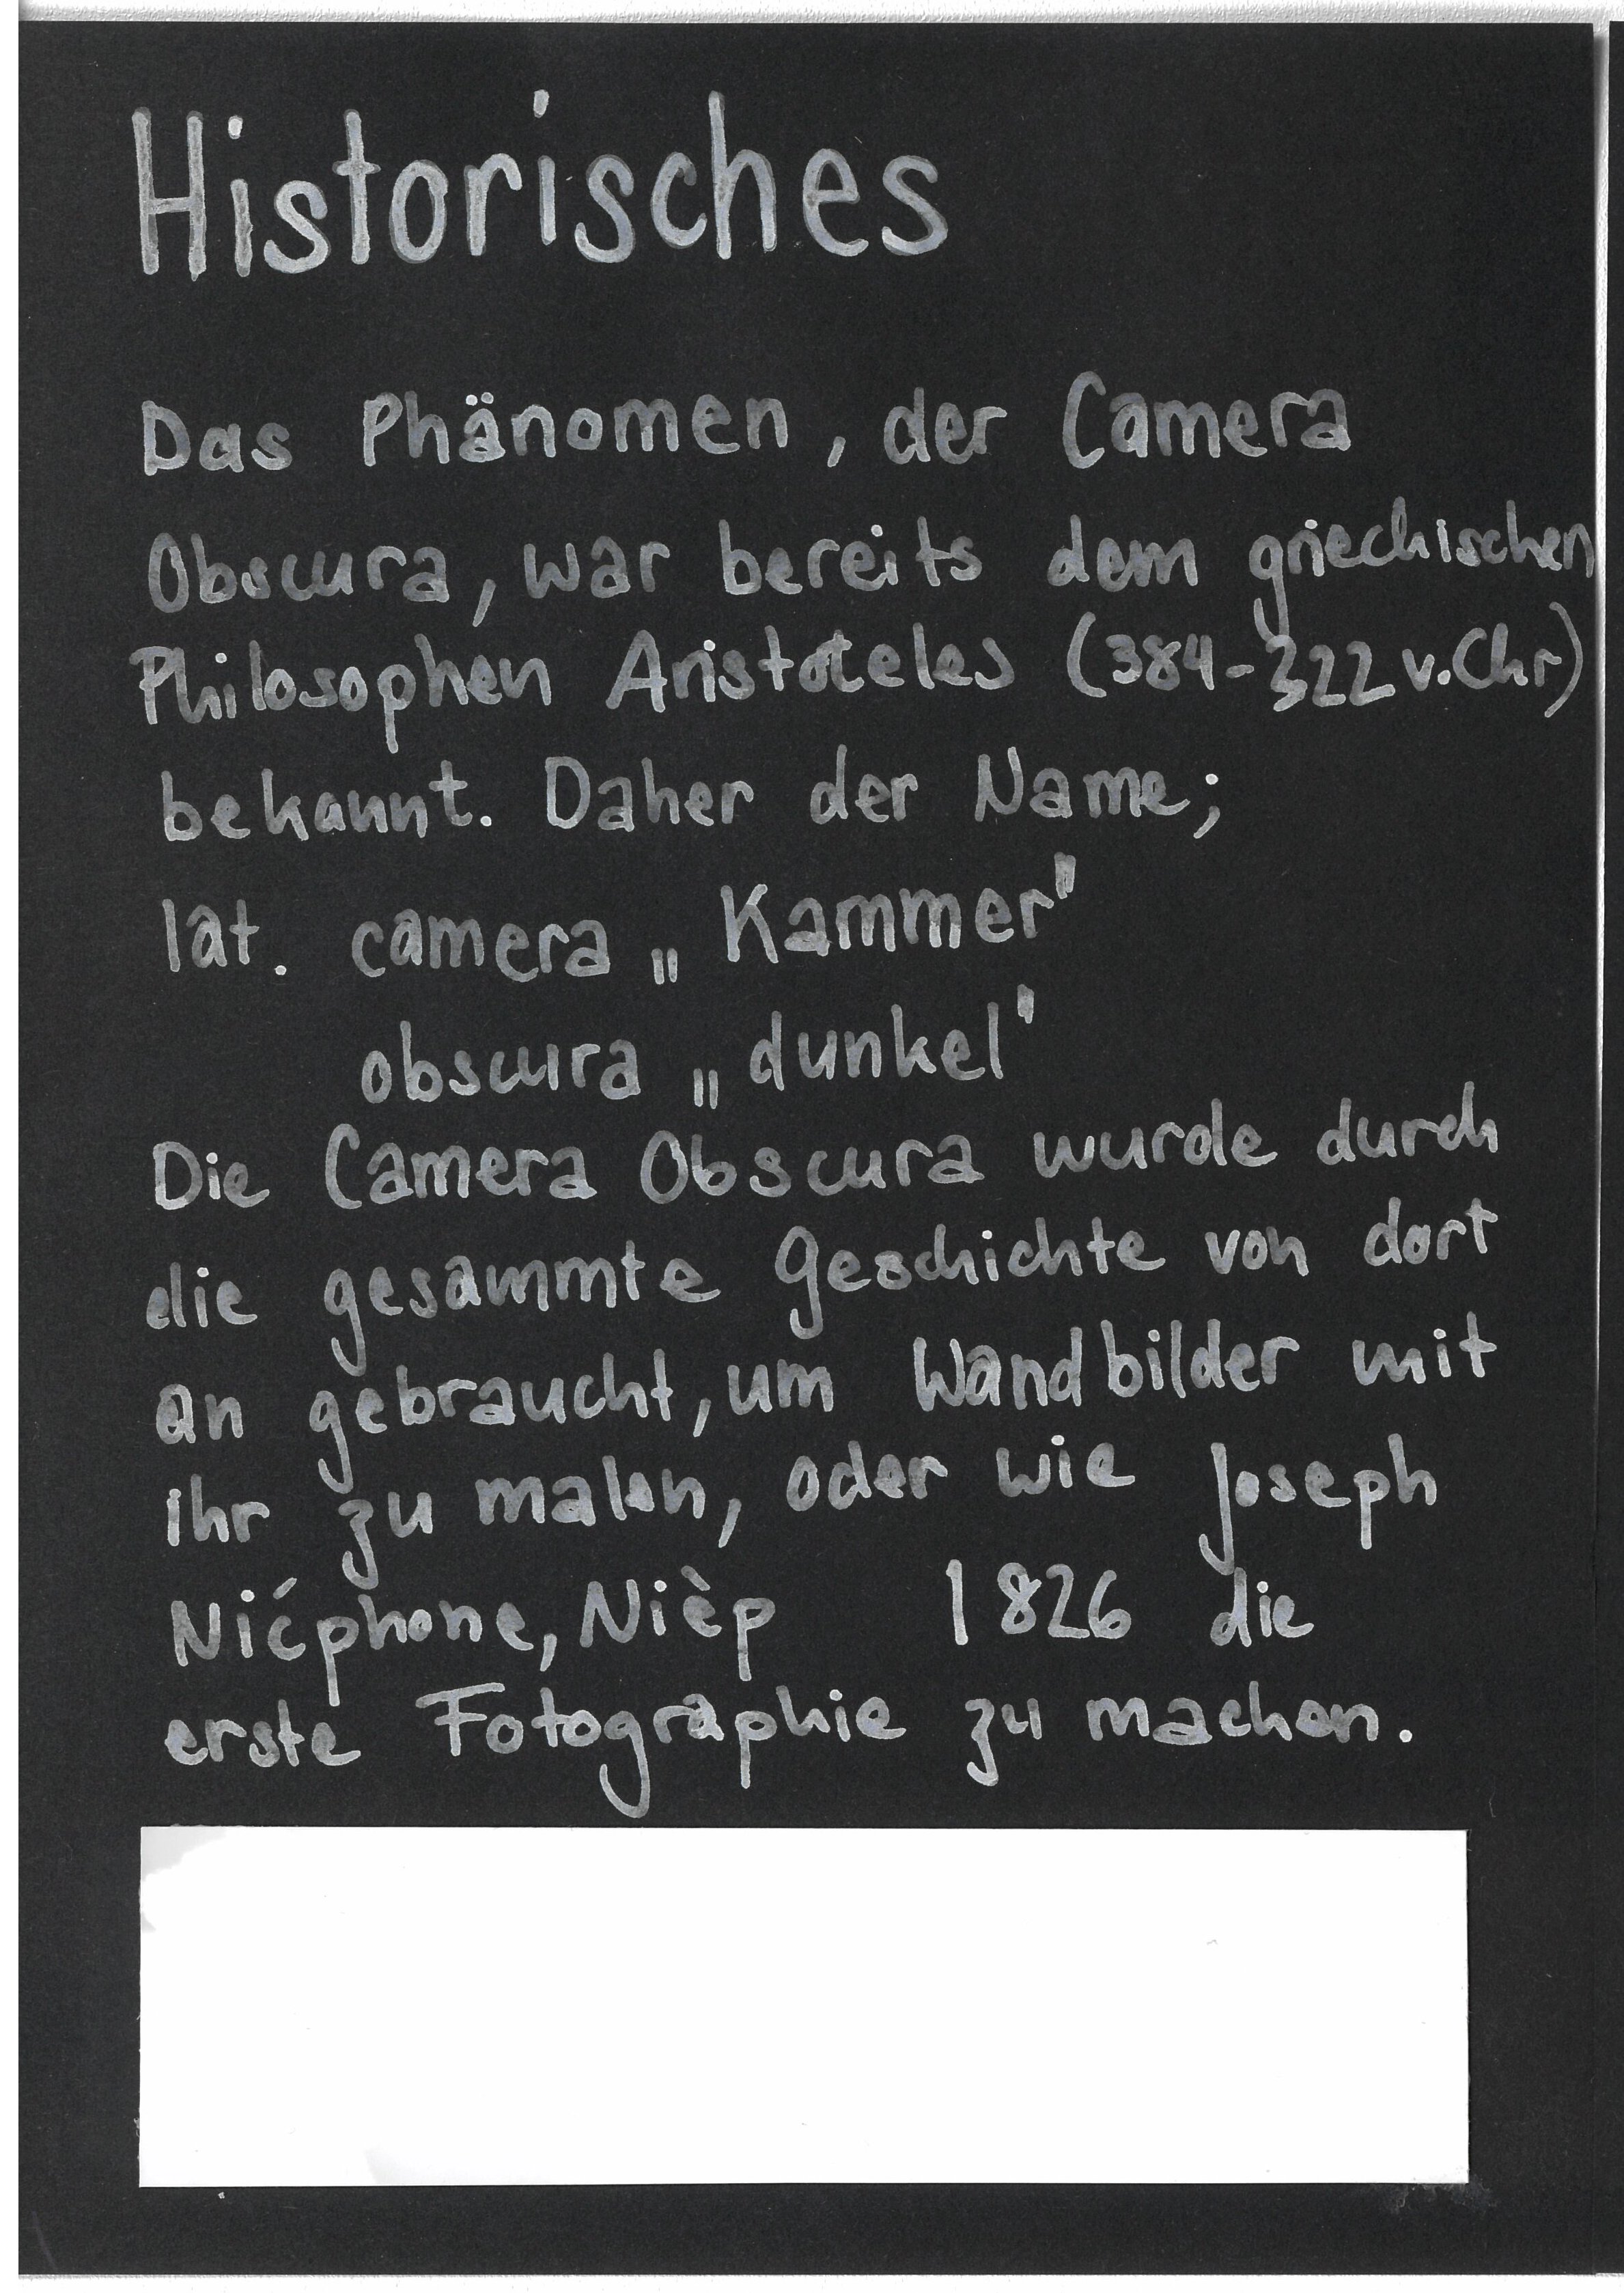 Historisches
Das Phänomen, der Camera
Obscura, war bereits dem griechischen
Philosophen Aristoteles (384-322 v. Chr)
bekannt. Daher der Name;
lat. camera „Kammer"
obscura „dunkel"
Die Camera Obscura wurde durch
die gesammte Geschichte von dort
an gebraucht, um Wandbilder mit
ihr zu malen, oder wie Joseph
Nićphone, Nièp 1826 die
erste Fotographie zu machen.